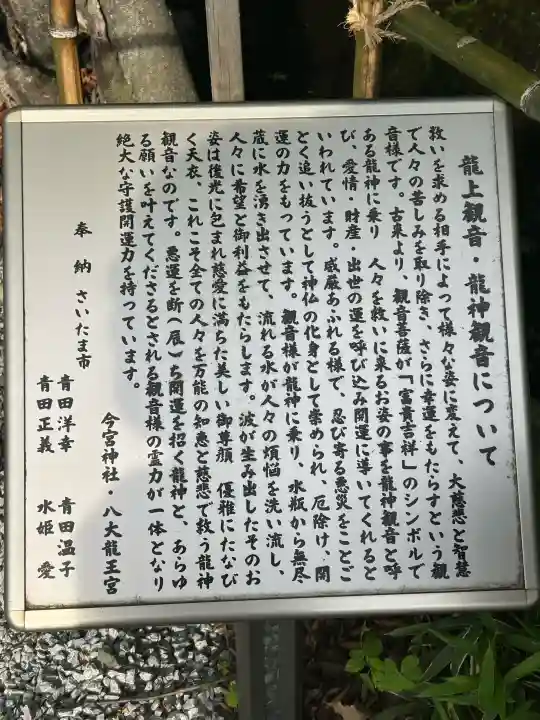 龍上観音・龍神観音について
救いを求める相手によって様々な姿に変えて、大慈悲と智慧
で人々の苦しみを取り除き、さらに幸運をもたらすという観
音様です。古来より、観音菩薩が「富貴吉祥」のシンボルで
ある龍神に乗り 人々を救いに来るお姿の事を龍神観音と呼
び、愛情・財産・出世の運を呼び込み開運に導いてくれると
いわれています。威厳あふれる様で、忍び寄る悪災をことご
とく追い抜うとして神仏の化身として崇められ、厄除け、開
運の力をもっています。観音様が龍神に乗り、水瓶から無尽
蔵に水を湧き出させて、流れる水が人々の煩悩を洗い流し、
人々に希望と御利益をもたらします。波が生み出したそのお
姿は後光に包まれ慈愛に満ちた美しい御尊顔 優雅にたなび
く天衣、これこそ全ての人々を万能の知恵と慈悲で救う龍神
観音なのです。悪運を断(辰)ち開運を招く龍神と、あらゆ
る願いを叶えてくださるとされる観音様の霊力が一体となり
絶大な守護開運力を持っています。
今宮神社・八大龍王宮
奉納 さいたま市
青田洋幸 青田温子
青田正義 水姫 愛